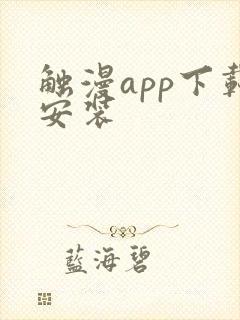 触漫app下载
安装
藍海碧